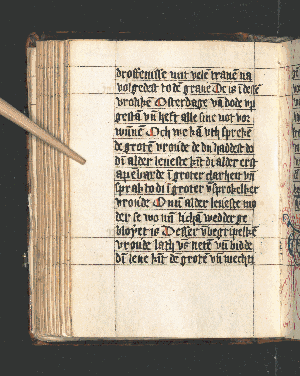 droffenisse mit vele tranē na
volgedest to dē grane De is ī desse
vrolikē Osterdage vā dode vp
gestā vn̄ heft alle sine not vor
wūnē Och we kā vth sprekē
de grotē vroude de du haddest do
dī alder leueste kīt di alder erst
apēbarde ī groter clarheit vn̄
sprak to di ī groter vnsprokelker
vroude O mī alder leueste mo
der se wo mī licha wedder ge
bloyet is Desser vnbegripelkē
vroude lath vs netē vn̄ bidde
dī leue kīt de grotē vn̄ mechti